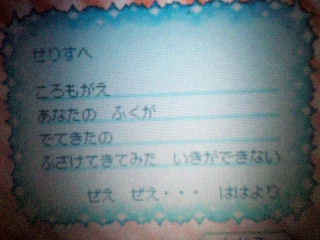 せりすへ
ころもがえ
あなたの　ふくが
でてきたの
ふざけてきてみた　いきができない
ぜえ　ぜえ・・・　ははより